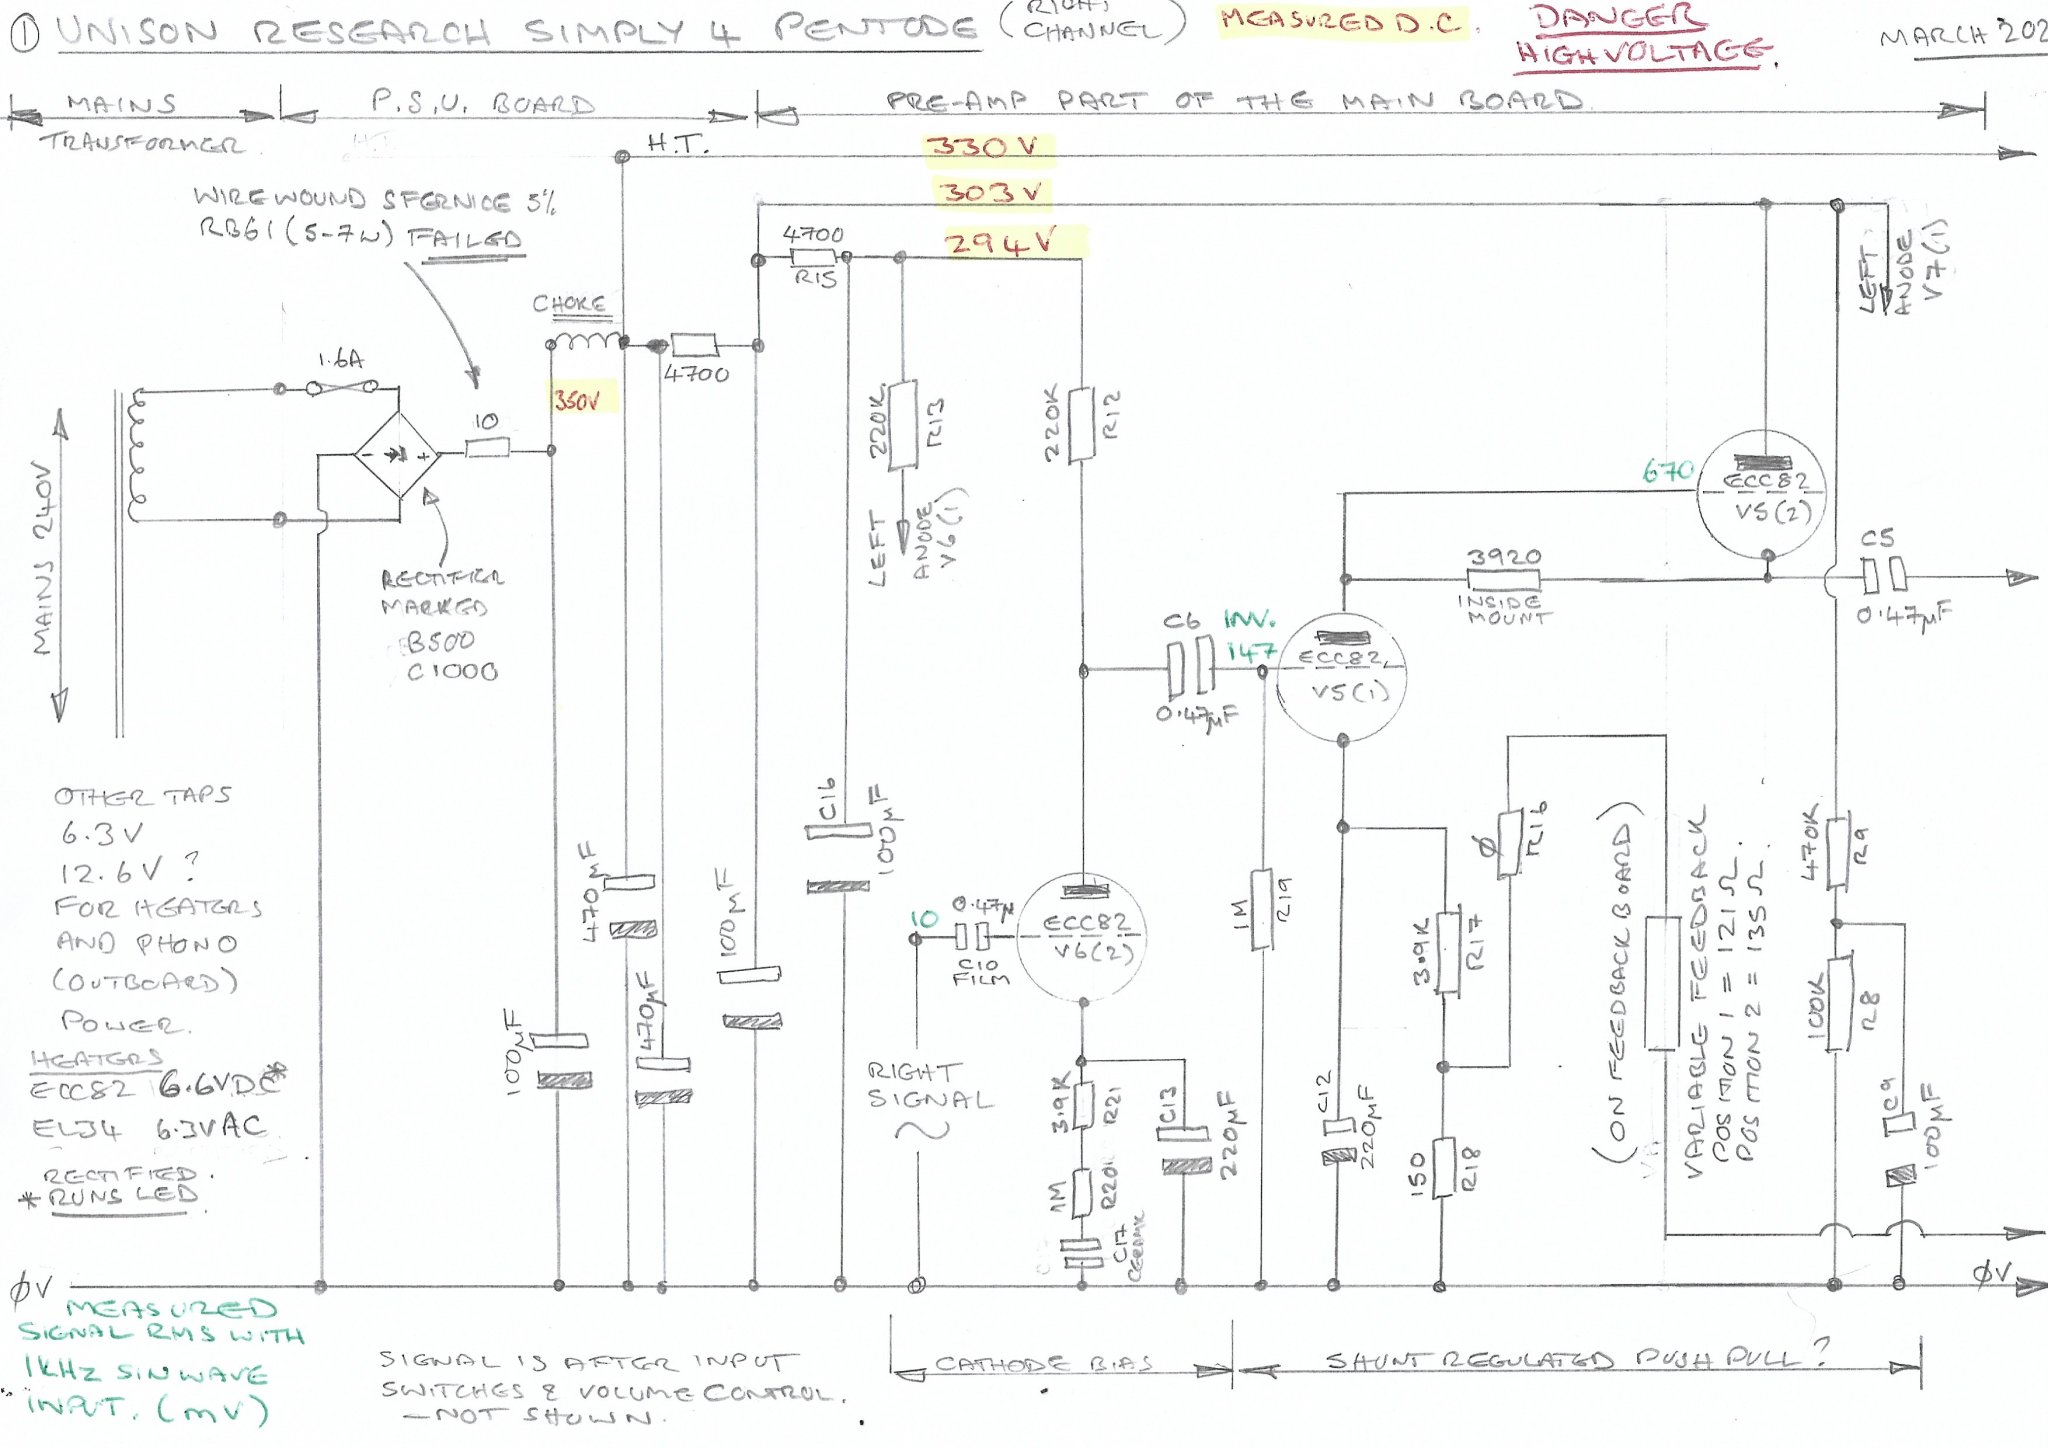 ① UNISON RESEARCH SIMPLY 4 PENTODE (RIGHT CHANNEL)
MEASURED D.C.
DANGER
HIGH VOLTAGE.
MARCH 202
MAINS
TRANSFORMER
P.S.U. BOARD
PRE-AMP PART OF THE MAIN BOARD
H.T.
330V
303V
294V
WIREWOUND SFERNICE 5%
RB61 (5-7W) FAILED
4700
R15
CHOKE
4700
350V
1.6A
10
- +
MAINS 240V
RECTIFIER
MARKED
B500
C1000
220K
R13
LEFT
ANODE
V6(1)
220K
R12
LEFT
ANODE
V7(1)
670
ECC82
V5(2)
3920
INSIDE
MOUNT
C5
0.47µF
C6
0.47µF
INV.
147
ECC82
V5(1)
OTHER TAPS
6.3V
12.6V ?
FOR HEATERS
AND PHONO
(OUTBOARD)
POWER.
HEATERS
ECC82 6.6VDC*
EL34 6.3VAC
RECTIFIED.
* RUNS LED
100µF
470µF
470µF
100µF
C16
100µF
10
0.47µ
C10
FILM
ECC82
V6(2)
RIGHT
SIGNAL
3.9K
R21
1M
R20
C17
CERAMIC
C13
220µF
1M
R19
C12
220µF
3.9K
R17
150
R18
Ø
R16
(ON FEEDBACK BOARD)
VARIABLE FEEDBACK
POSITION 1 = 121Ω.
POSITION 2 = 135Ω.
470K
R9
100K
R8
C9
100µF
ØV
ØV
MEASURED
SIGNAL RMS WITH
1KHZ SINWAVE
INPUT. (mV)
SIGNAL IS AFTER INPUT
SWITCHES & VOLUME CONTROL.
- NOT SHOWN.
CATHODE BIAS
SHUNT REGULATED PUSH PULL ?